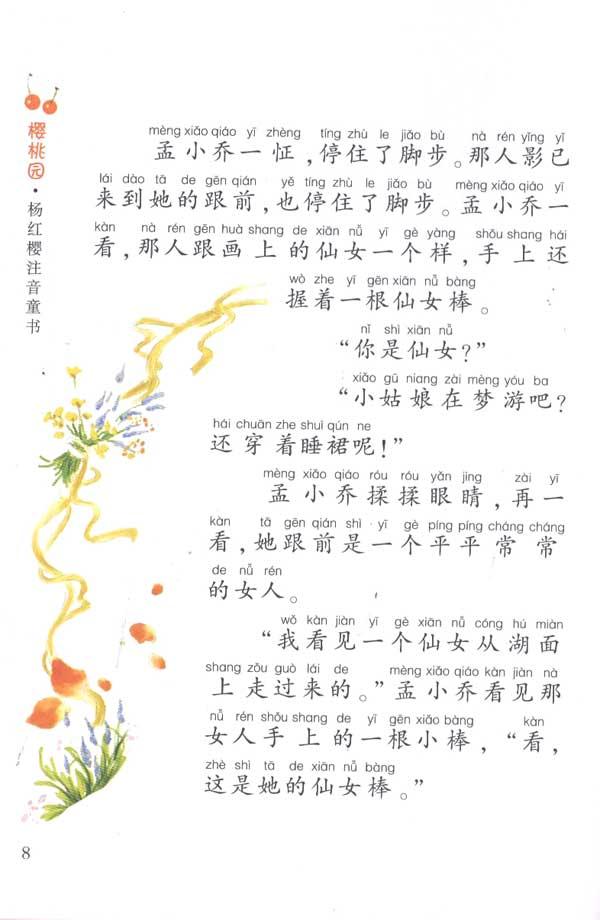 樱桃园·杨红樱注音童书
mèng xiǎo qiáo yī zhèng tíng zhù le jiǎo bù nà rén yǐng yǐ
孟小乔一怔,停住了脚步。那人影已
lái dào tā de gēn qián yě tíng zhù le jiǎo bù mèng xiǎo qiáo yī
来到她的跟前,也停住了脚步。孟小乔一
kàn nà rén gēn huà shang de xiān nǚ yī gè yàng shǒu shang hái
看,那人跟画上的仙女一个样,手上还
wò zhe yī gēn xiān nǚ bàng
握着一根仙女棒。
nǐ shì xiān nǚ
“你是仙女?”
xiǎo gū niang zài mèng yóu ba
“小姑娘在梦游吧?
hái chuān zhe shuì qún ne
还穿着睡裙呢!”
mèng xiǎo qiáo róu róu yǎn jing zài yī
孟小乔揉揉眼睛,再一
kàn tā gēn qián shì yī gè píng píng cháng cháng
看,她跟前是一个平平常常
de nǚ rén
的女人。
wǒ kàn jiàn yī gè xiān nǚ cóng hú miàn
“我看见一个仙女从湖面
shang zǒu guò lái de mèng xiǎo qiáo kàn jiàn nà
上走过来的。”孟小乔看见那
nǚ rén shǒu shang de yī gēn xiǎo bàng kàn
女人手上的一根小棒,“看,
zhè shì tā de xiān nǚ bàng
这是她的仙女棒。”
8